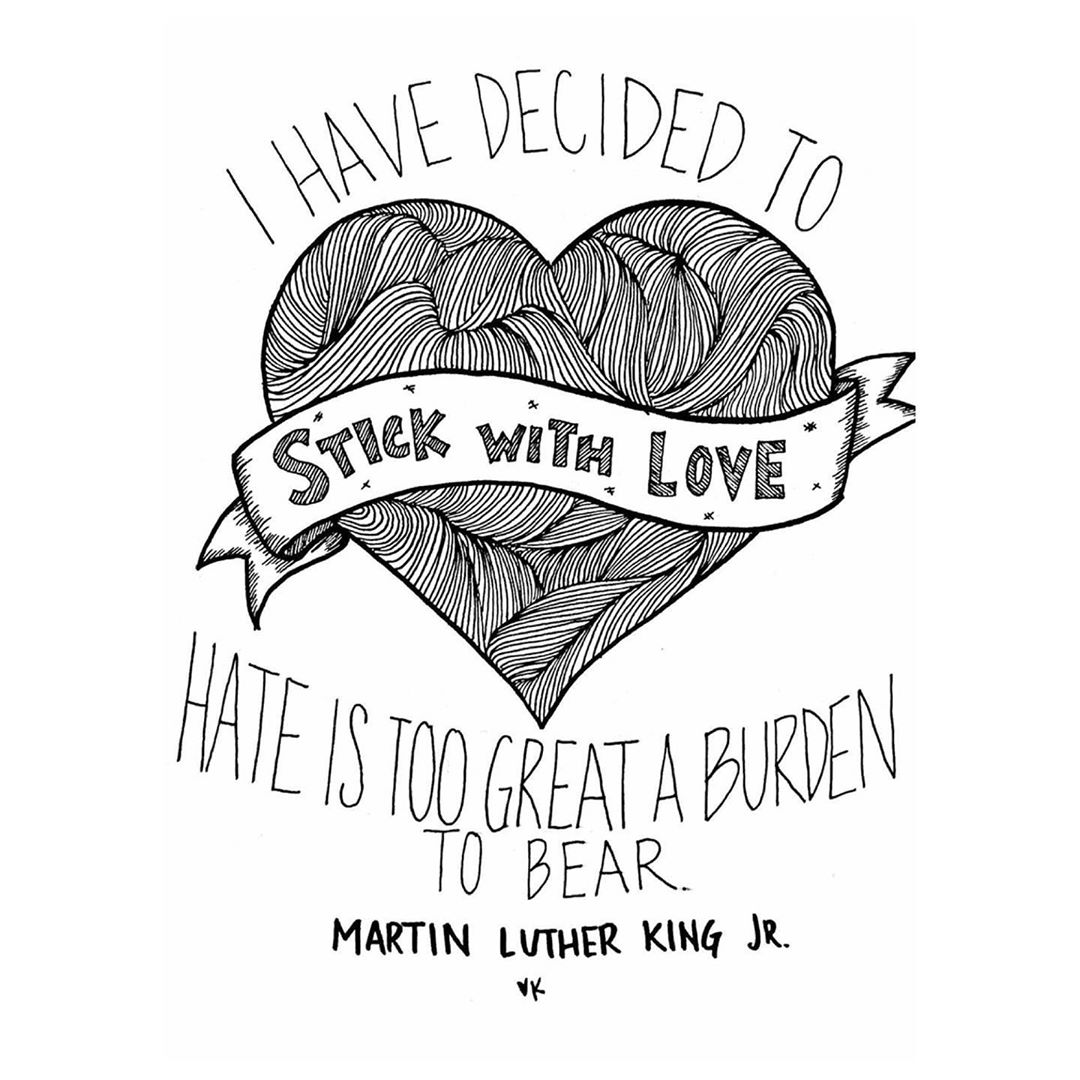 I HAVE DECIDED TO
STICK WITH LOVE
HATE IS TOO GREAT A BURDEN
TO BEAR.
MARTIN LUTHER KING JR.
♥K